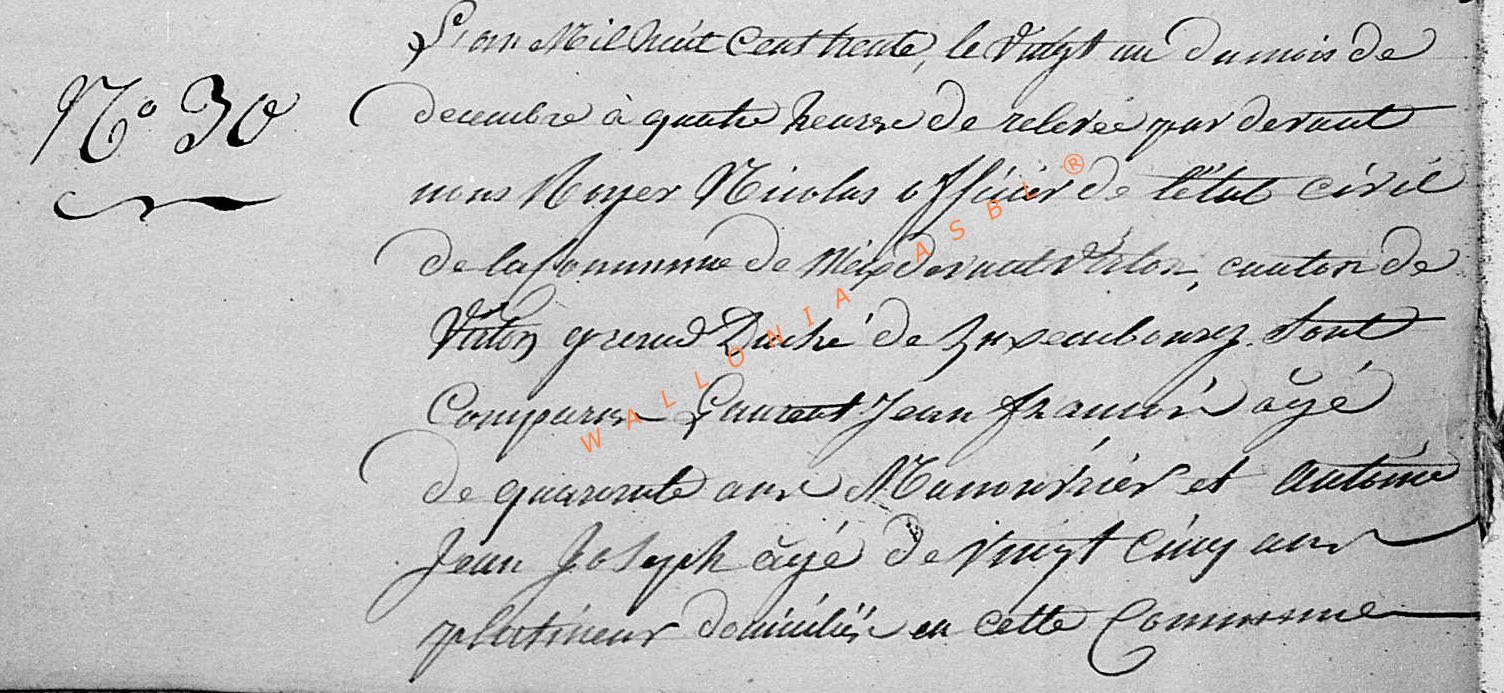 N° 30
L'an Mil huit Cent trente, le vingt un du mois de
decembre à quatre heures de relevée par devant
nous Royer Nicolas officier de l'état civil
de la Commune de Meix devant Virton, canton de
Virton grand Duché de Luxembourg. Sont
Comparus Laurent Jean françois âgé
de quarante ans Manouvrier et Antoine
Jean Joseph âgé de vingt cinq ans
platineur domiciliés en cette Commune
WALLONIA ASBL ®